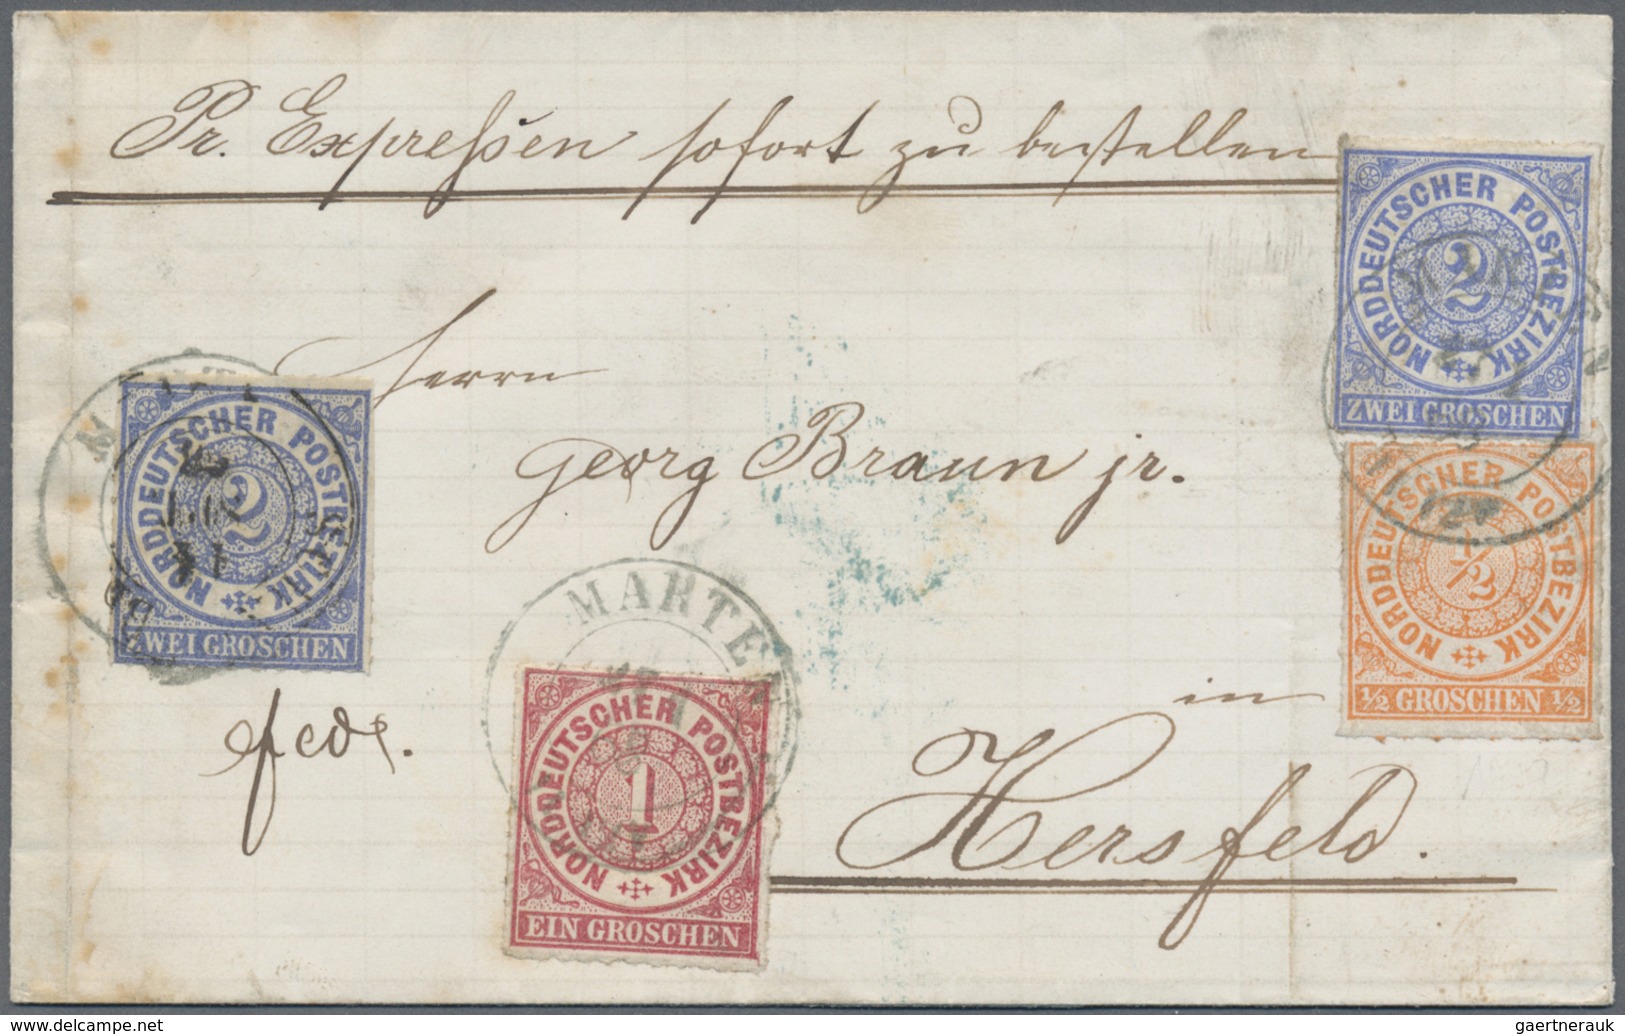 Pr. Expreßen sofort zu bestellen
NORDDEUTSCHER POSTBEZIRK
2
ZWEI GROSCHEN
NORDDEUTSCHER POSTBEZIRK
1/2
1/2 GROSCHEN 1/2
Herrn
Georg Braun jr.
NORDDEUTSCHER POSTBEZIRK
2
ZWEI GROSCHEN
fco.
MARTE
NORDDEUTSCHER POSTBEZIRK
1
EIN GROSCHEN
in
Hersfeld.
www.delcampe.net
gaertnerauk